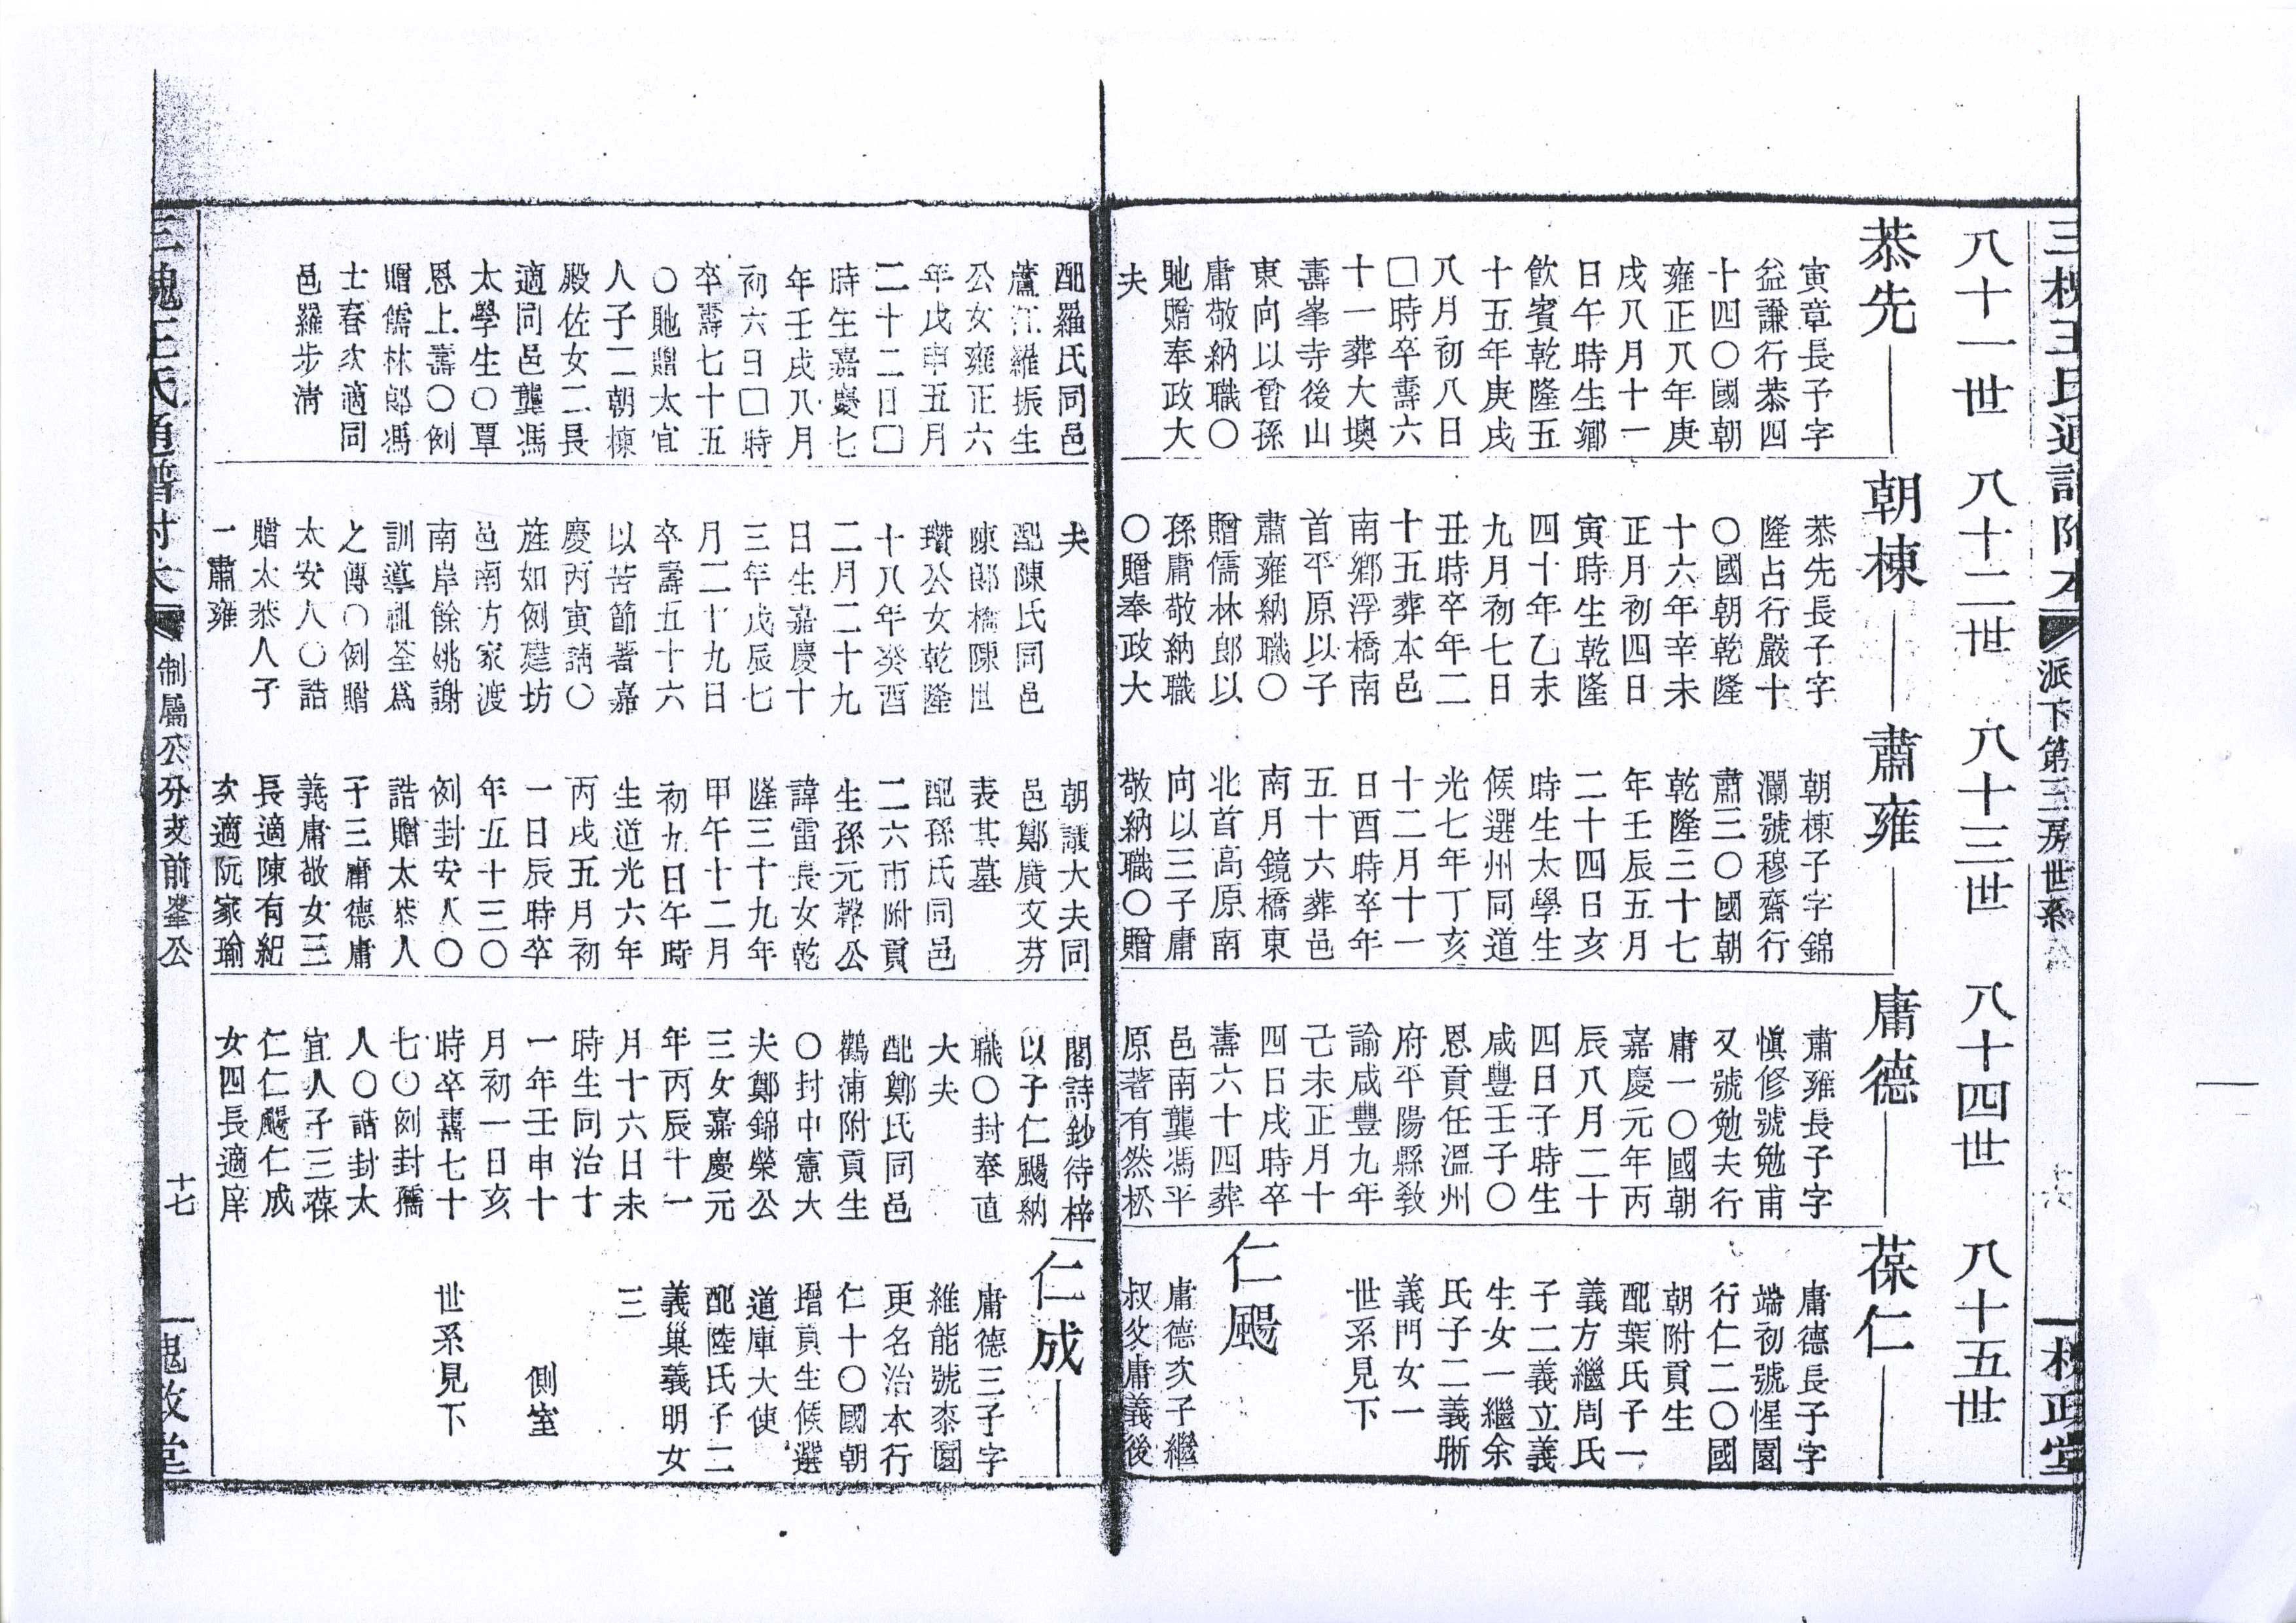 三槐王氏通譜附 派下第三房世系 槐政堂
八十一世 八十二世 八十三世 八十四世 八十五世
恭先
寅章長子字
益謙行恭四
十四〇國朝
雍正八年庚
戌八月十一
日午時生鄉
飲賓乾隆五
十五年庚戌
八月初八日
□時卒壽六
十一葬大墺
壽峯寺後山
東向以曾孫
庸敬納職〇
貤贈奉政大
夫
朝棟
恭先長子字
隆占行嚴十
〇國朝乾隆
十六年辛未
正月初四日
寅時生乾隆
四十年乙未
九月初七日
丑時卒年二
十五葬本邑
南鄉浮橋南
首平原以子
肅雍納職〇
贈儒林郎以
孫庸敬納職
〇贈奉政大
肅雍
朝棟子字錦
瀾號穆齋行
肅三〇國朝
乾隆三十七
年壬辰五月
二十四日亥
時生太學生
候選州同道
光七年丁亥
十二月十一
日酉時卒年
五十六葬邑
南月鏡橋東
北首高原南
向以三子庸
敬納職〇贈
庸德
肅雍長子字
愼修號勉甫
又號勉夫行
庸一〇國朝
嘉慶元年丙
辰八月二十
四日子時生
咸豐壬子〇
恩貢任溫州
府平陽縣教
諭咸豐九年
己未正月十
四日戌時卒
壽六十四葬
邑南龔馮平
原著有然松
葆仁
庸德長子字
端初號惺園
行仁二〇國
朝附貢生
配葉氏子一
義方繼周氏
子二義立義
生女一繼余
氏子二義晰
義門女一
世系見下
仁颺
庸德次子繼
叔父庸義後
配羅氏同邑
蘆江羅振生
公女雍正六
年戊申五月
二十二日□
時生嘉慶七
年壬戌八月
初六日□時
卒壽七十五
〇貤贈太宜
人子二朝棟
殿佐女二長
適同邑龔馮
太學生〇覃
恩上壽〇例
贈儒林郎馮
士春次適同
邑羅步淸
夫
配陳氏同邑
陳郎橋陳世
瓚公女乾隆
十八年癸酉
二月二十九
日生嘉慶十
三年戊辰七
月二十九日
卒壽五十六
以苦節著嘉
慶丙寅請〇
旌如例建坊
邑南方家渡
南岸餘姚謝
訓導祖荃爲
之傳〇例贈
太安人〇誥
贈太恭人子
一肅雍
朝議大夫同
邑鄭廣文芬
表其墓
配孫氏同邑
二六市附貢
生孫元馨公
諱雷長女乾
隆三十九年
甲午十二月
初九日午時
生道光六年
丙戌五月初
一日辰時卒
年五十三〇
例封安人〇
誥贈太恭人
子三庸德庸
義庸敬女三
長適陳有紀
次適阮家瑜
閣詩鈔待梓
以子仁颺納
職〇封奉直
大夫
配鄭氏同邑
鸛浦附貢生
〇封中憲大
夫鄭錦榮公
三女嘉慶元
年丙辰十一
月十六日未
時生同治十
一年壬申十
月初一日亥
時卒壽七十
七〇例封孺
人〇誥封太
宜人子三葆
仁仁颺仁成
女四長適岸
仁成
庸德三子字
維能號黍園
更名治本行
仁十〇國朝
增貢生候選
道庫大使
配陸氏子二
義巢義明女
三
側室
世系見下
三槐王氏通譜附 制屬公分支前峯公 十七 槐政堂